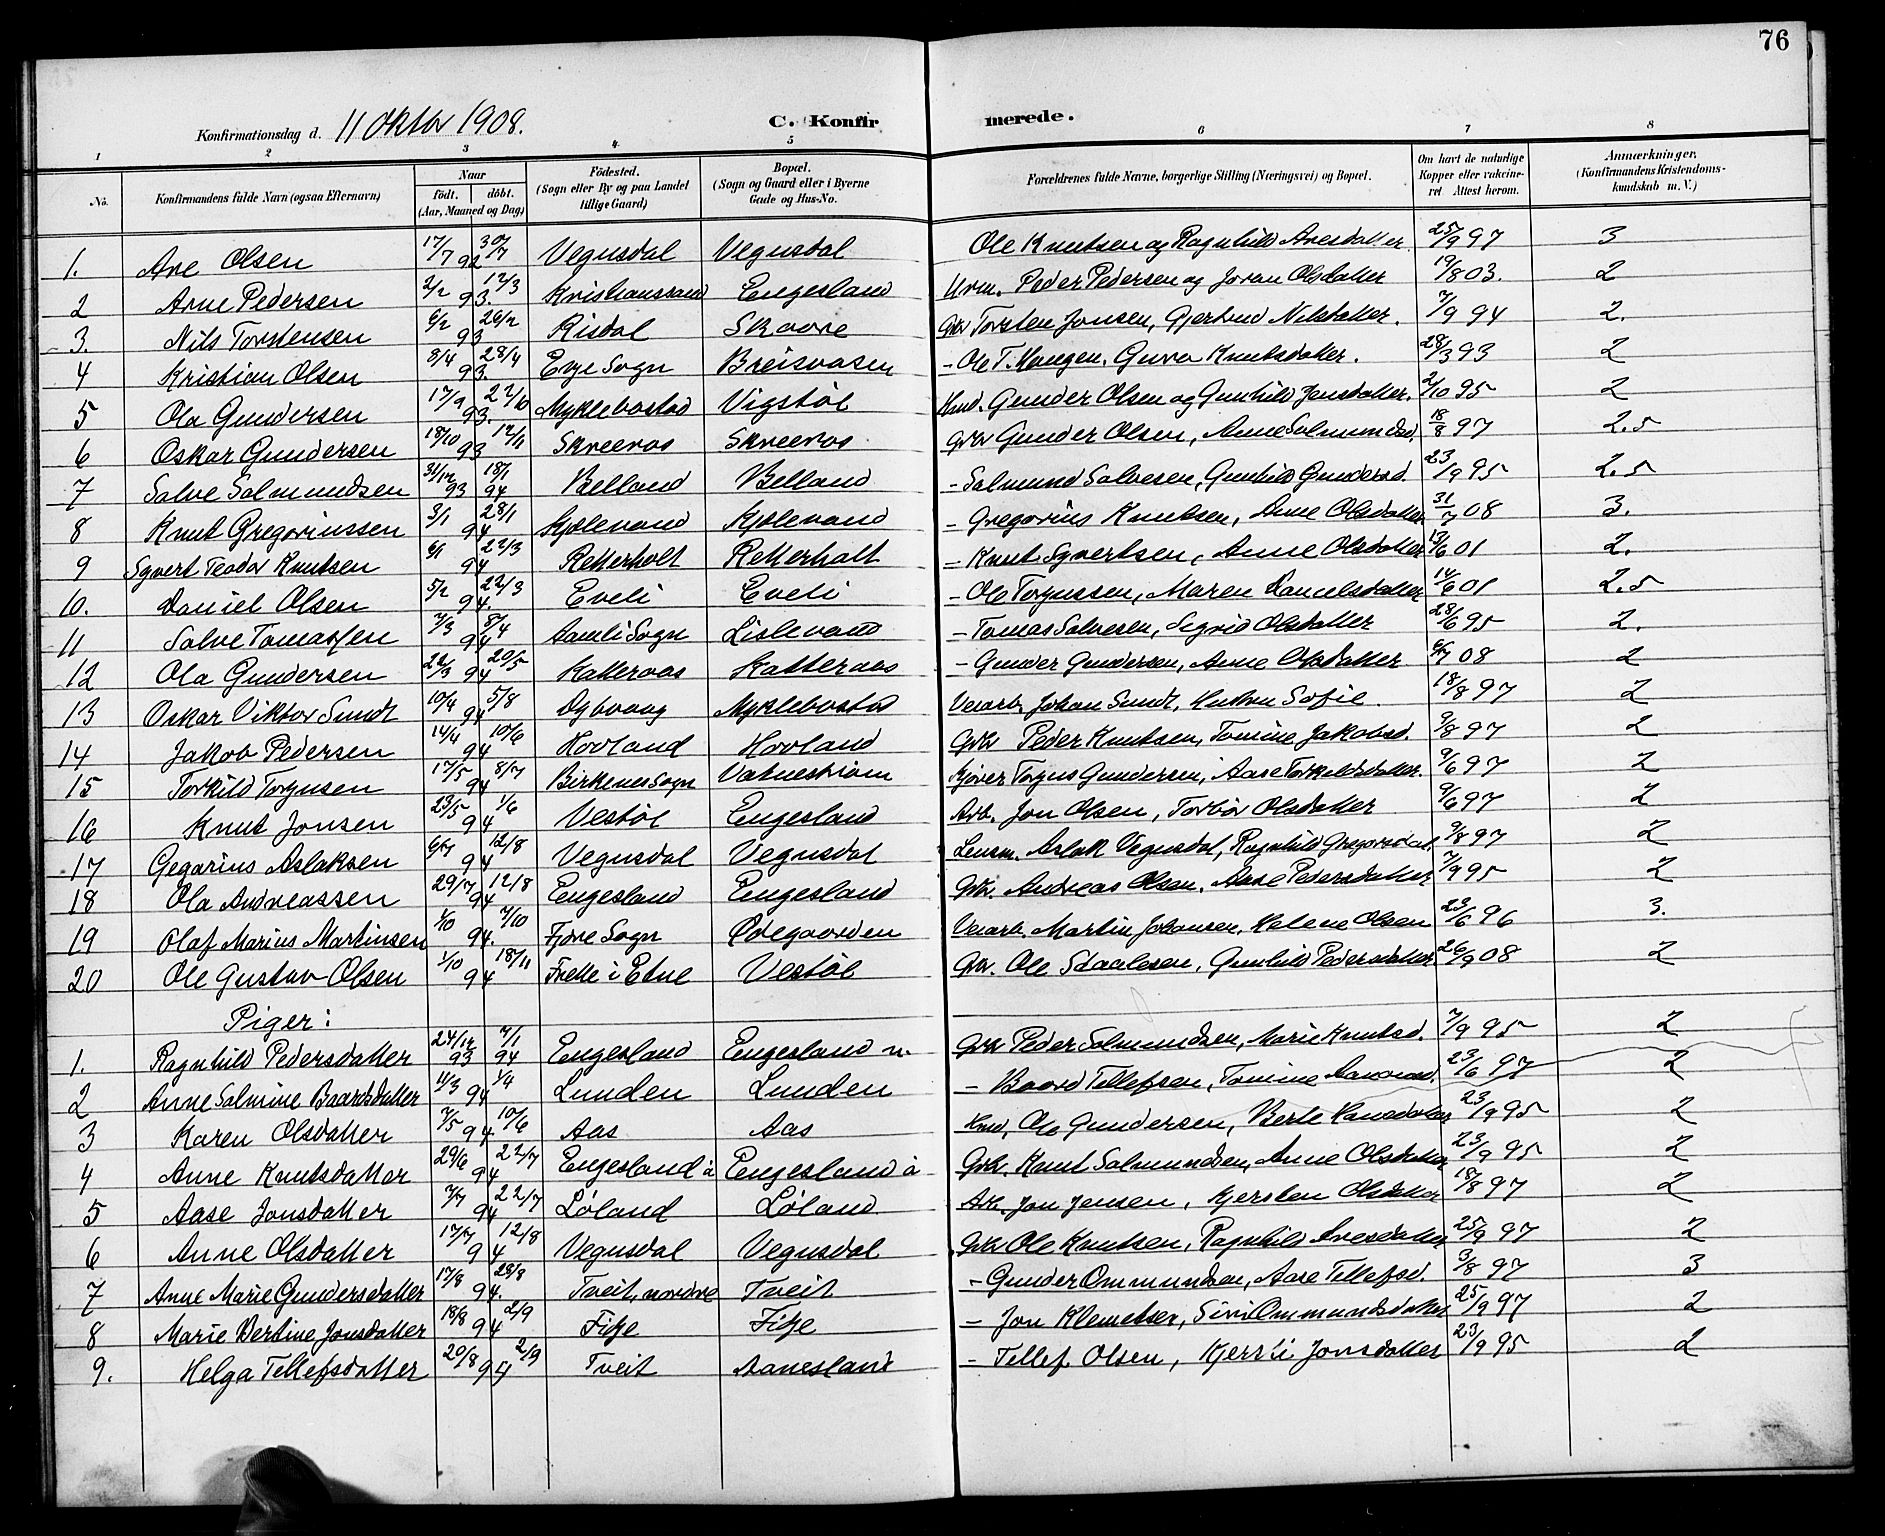 76
Konfirmationsdag d. 11 Oktbr 1908. C. Konfirmerede.
1 2 3 4 5 6 7 8
No. Konfirmandens fulde Navn (ogsaa Efternavn) Naar født. døbt. (Aar, Maaned og Dag) Fødested. (Sogn eller By og paa Landet tillige Gaard) Bopæl. (Sogn og Gaard eller i Byerne Gade og Hus-No. Forældrenes fulde Navne, borgerlige Stilling (Næringsvei) og Bopæl. Om havt de naturlige Kopper eller vakcineret. Attest herom. Anmærkninger. (Konfirmandens Kristendomskundskab m. V.)
1. Are Olsen 17/7 92 30/7 Vegusdal Vegusdal Ole Knutsen og Ragnhild Aresdatter 25/9 97 3
2 Arne Pedersen 2/2 93. 12/3 Kristianssand Engesland Urm. Peder Pedersen og Joran Olsdatter 19/8 03. 2
3. Nils Torstensen 6/2 93 26/2 Risdal Skaare Gbr Torsten Jonsen, Gjertrud Nilsdatter. 7/9 94 2.
4 Kristian Olsen 8/4 93. 28/4 Evje Sogn Breisvasen - Ole T. Haugen, Guro Knutsdatter. 28/3 93 2
5 Ola Gundersen 17/9 93. 22/10 Myklebostad Vigstøl Hmd. Gunder Olsen og Gunhild Jensdatter. 2/10 95 2
6 Oskar Gundersen 18/10 93 12/11 Skreeros Skreeros Gbr Gunder Olsen, Anne Salmundsd. 18/8 97 2.5
7 Salve Salmundsen 31/12 93 18/1 94 Belland Belland - Salmund Salvesen, Gunhild Gundersd. 23/9 95 2.5
8 Knut Gregoriussen 3/1 94 28/1 Kjølevand Kjølevand - Gregorius Knutsen, Anne Olsdatter 31/7 08 3.
9 Syvert Teodor Knutsen 6/1 94 22/3 Retterholt Retterholt - Knut Syvertsen, Anne Olsdatter 13/6 01 2.
10. Daniel Olsen 5/2 94. 22/3 Eveli Eveli - Ole Torgussen, Maren Danielsdatter 14/6 01 2.5
11 Salve Tomassen 7/3 94 8/4 Aamli Sogn Lislevand - Tomas Salvesen, Sigrid Olsdatter 28/6 95 2.
12 Ola Gundersen 22/3 94 20/5 Katteraas Katteraas - Gunder Gundersen, Anne Olsdatter 6/7 08 2
13 Oskar Viktor Sundt 10/4 94 5/8 Dybvaag Myklebostad Veiarb. Johan Sundt, Hustru Sofie. 18/8 97 2
14 Jakob Pedersen 14/4 94 10/6 Hovland Hovland Gbr Peder Knutsen, Tomine Jakobsd. 9/8 97 2
15 Torkild Torgusen 17/5 94 8/7 Birkenes Sogn Vatnestrøm Kjører Torgus Gundersen, Aase Torkildsdatter. 9/6 97 2
16 Knut Jonsen 23/5 94 1/6 Vestøl Engesland Arb. Jon Olsen, Torbor Olsdatter 9/6 97 2
17 Gegarius Aslaksen 6/7 94 12/8 Vegusdal Vegusdal Lensm. Aslak Vegusdal, Ragnhild Gregorsdat. 9/8 97 2
18 Ola Andreassen 29/7 94 12/8 Engesland Engesland Gbr. Andreas Olsen, Aase Pedersdatter 7/9 95 2
19 Olaf Marius Martinsen 1/10 94. 7/10 Fjære Sogn Ødegaarden Veiarb. Martin Johansen, Helene Olsen 23/6 96 3.
20 Ole Gustav Olsen 1/10 94 18/11 Frette i Etne Vestøl Gbr. Ole Staalesen, Gunhild Pedersdatter. 26/9 08 2
Piger:
1. Ragnhild Pedersdatter 24/12 93 7/1 94 Engesland Engesland n. Gbr Peder Salmundsen, Marie Knutsd. 7/9 95 2
2 Anne Salmine Baardsdatter 11/3 94 1/4 Lunden Lunden - Baard Tellefsen, Tomine 23/6 97 2
3 Karen Olsdatter 7/5 94 10/6 Aas Aas Hmd, Ole Gundersen, Berte Hansdatter 23/9 95 2
4 Anne Knutsdatter 29/6 94 22/7 Engesland ø Engesland ø Gbr. Knut Salmundsen, Anne Olsdatter 23/9 95 2
5 Aase Jonsdatter 7/7 94 22/7 Løland Løland Arb. Jon Jensen, Kjersten Olsdatter 18/8 97 2
6 Anne Olsdatter 17/7 94 12/8 Vegusdal Vegusdal Gbr Ole Knutsen, Ragnhild Aresdatter 25/9 97 2
7 Anne Marie Gundersdatter 17/8 94. 28/8 Tveit, nordre Tveit - Gunder Ommundsen, Aase Tellefsd. 3/8 97 3
8 Marie Bertine Jonsdatter 18/8 94 2/9 Fitje Fitje - Jon Klemetsen, Siri Ommundsdatter 25/9 97 2
9. Helga Tellefsdatter 20/8 94 2/9 Tveit Aanesland - Tellef Olsen, Kjersti Jonsdatter 23/9 95 2